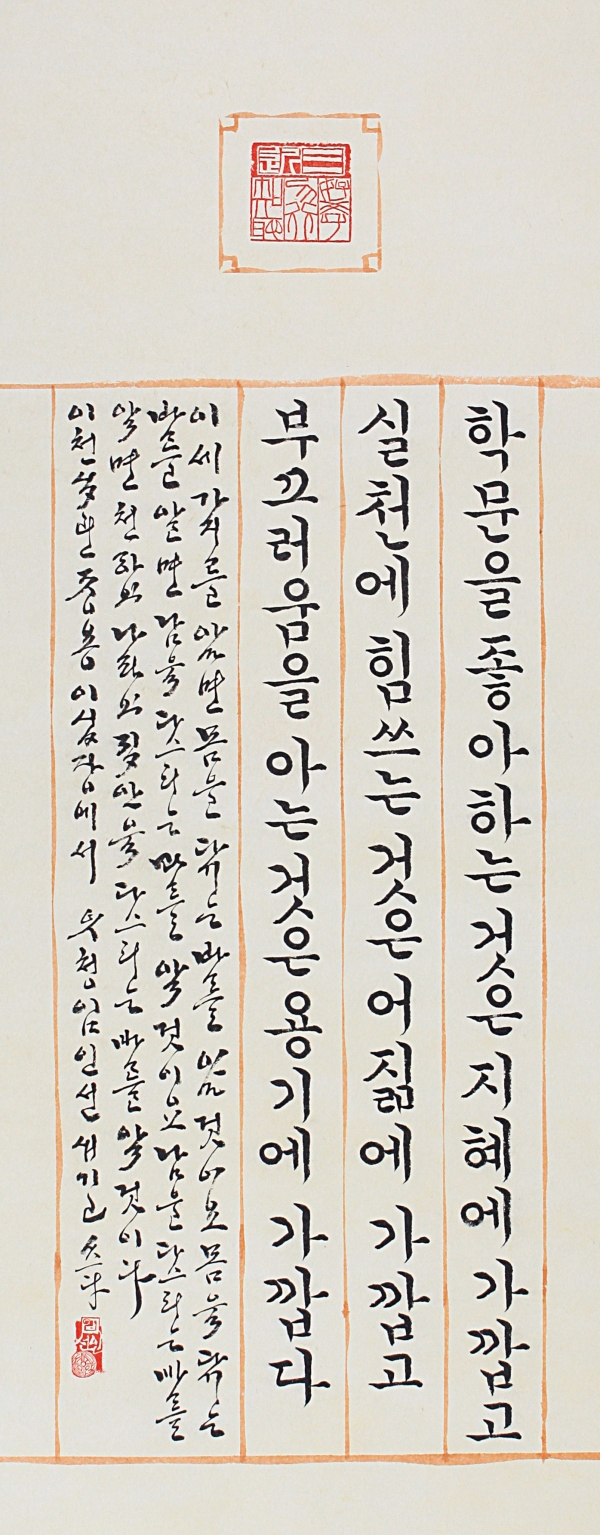 학문을 좋아하는 것은 지혜에 가깝고
실천에 힘쓰는 것은 어짊에 가깝고
부끄러움을 아는 것은 용기에 가깝다
이 세 가지를 알면 몸을 닦는 바를 알 것이요 몸을 닦는
바를 알면 남을 다스리는 바를 알 것이요 남을 다스리는 바를
알면 천하와 나라와 집안을 다스리는 바를 알 것이다
이천 중용 이십장에서 임인선 쓰다